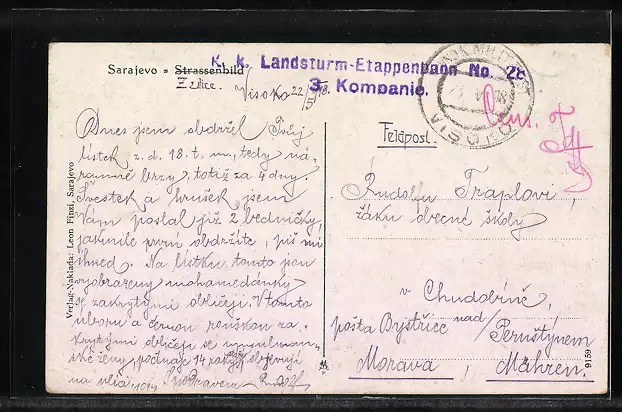 Sarajevo = Strassenbild
Z ulice.
K. k. Landsturm-Etappenbaon No. 28
3. Kompanie.
Visoko 22/5 18.
VISOKO
Feldpost.
Dnes jsem obdržel Tvůj
lístek z. d. 18. t. m., tedy ná-
ramně brzy, totiž za 4 dny.
Švestek a hrušek jsem
Vám poslal již 2 bedničky,
jakmile první obdržíte, piš mi
ihned. Na lístku tomto jsou
vyobrazeny mohamedánky
se zakrytými obličeji. V tomto
úboru a černou rouškou za-
krytými obličeji se
ské ženy, počínaje 14 objevují
na ulici. S pozdravem
Rudolfu Traplovi,
žáku obecné školy
v Chudobíně,
pošta Bystřice nad/
Pernštýnem
Morava, Mähren.
Verlag-Naklada: Leon Finzi, Sarajevo
9159